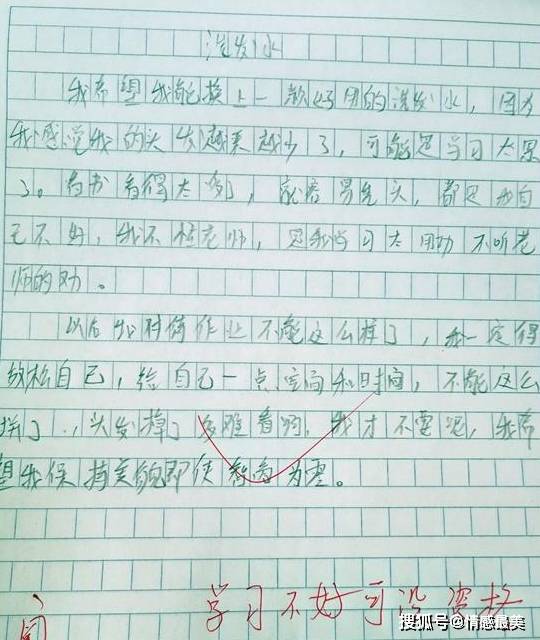 洗发水
我希望我能摸上一款好用的洗发水，因为
我感觉我的头发越来越少了，可能是学习太累
了。看书看得太多，就容易秃头，都是我自
己不好，我不怪老师，是我学习太用功不听老
师的劝。
以后我对待作业不能这么拼了，我一定得
放松自己，给自己一点空间和时间，不能这么
拼了..，头发掉了多难看的，我才不要呢，我希
望我保持美貌即使智商为零。
学习不好可没资格
搜狐号@情感最美